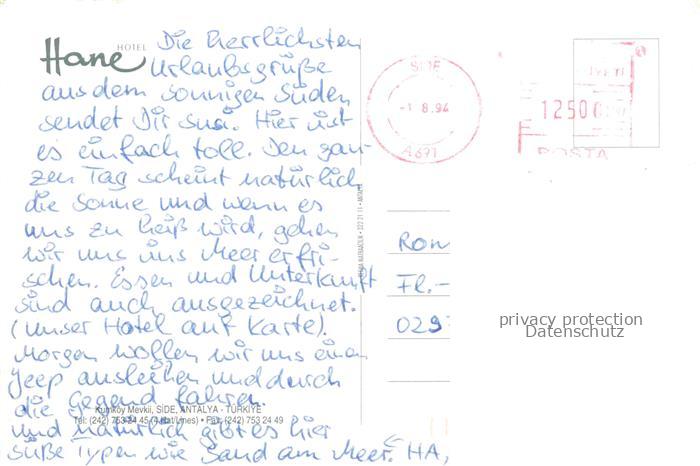 Hane HOTEL
Die herrlichsten
Urlaubsgrüße
aus dem sonnigen Süden
sendet Dir Susi. Hier ist
es einfach toll. Den gan-
zen Tag scheint natürlich
die Sonne und wenn es
uns zu heiß wird, gehen
wir uns ins Meer erfri-
schen. Essen und Unterkunft
sind auch ausgezeichnet.
(unser Hotel auf Karte).
Morgen wollen wir uns einen
Jeep ausleihen und durch
die Gegend fahren.
Kumköy Mevkii, SİDE, ANTALYA - TÜRKİYE
Tel: (242) 753 24 45 (4 Hat/Lines) • Fax: (242) 753 24 49
und natürlich gibt es hier
süße Typen wie Sand am Meer. HA,
SIDE
-1.8.94
A691
1250
POSTA
Rom
Fl.-
029
privacy protection
Datenschutz